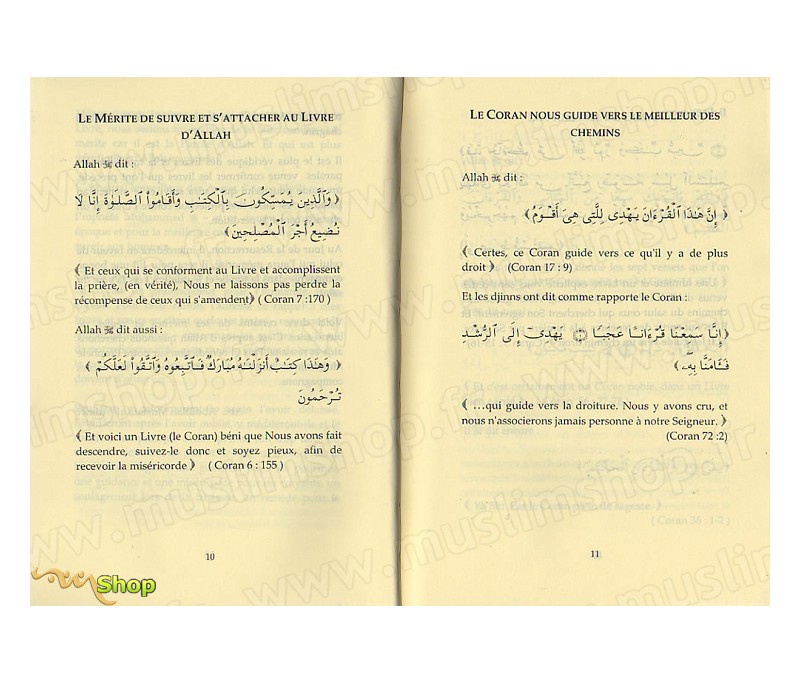 LE MÉRITE DE SUIVRE ET S'ATTACHER AU LIVRE
D'ALLAH
Allah ﷻ dit :
﴿وَٱلَّذِينَ يُمَسِّكُونَ بِٱلْكِتَٰبِ وَأَقَامُوا۟ ٱلصَّلَوٰةَ إِنَّا لَا
نُضِيعُ أَجْرَ ٱلْمُصْلِحِينَ﴾
﴾ Et ceux qui se conforment au Livre et accomplissent
la prière, (en vérité), Nous ne laissons pas perdre la
récompense de ceux qui s'amendent﴿ ( Coran 7 :170 )
Allah ﷻ dit aussi :
﴿ وَهَٰذَا كِتَٰبٌ أَنزَلْنَٰهُ مُبَارَكٌ فَٱتَّبِعُوهُ وَٱتَّقُوا۟ لَعَلَّكُمْ
تُرْحَمُونَ ﴾
﴾ Et voici un Livre (le Coran) béni que Nous avons fait
descendre, suivez-le donc et soyez pieux, afin de
recevoir la miséricorde ﴿ ( Coran 6 : 155 )
10
LE CORAN NOUS GUIDE VERS LE MEILLEUR DES
CHEMINS
Allah ﷻ dit :
﴿ إِنَّ هَٰذَا ٱلْقُرْءَانَ يَهْدِى لِلَّتِى هِىَ أَقْوَمُ﴾
﴾ Certes, ce Coran guide vers ce qu'il y a de plus
droit ﴿ (Coran 17 : 9)
Et les djinns ont dit comme rapporte le Coran :
﴿إِنَّا سَمِعْنَا قُرْءَانًا عَجَبًا ۝١ يَهْدِىٓ إِلَى ٱلرُّشْدِ
فَـَٔامَنَّا بِهِۦ﴾
﴾ …qui guide vers la droiture. Nous y avons cru, et
nous n'associerons jamais personne à notre Seigneur. ﴿
(Coran 72 :2)
11
www.muslimshop.fr
Shop